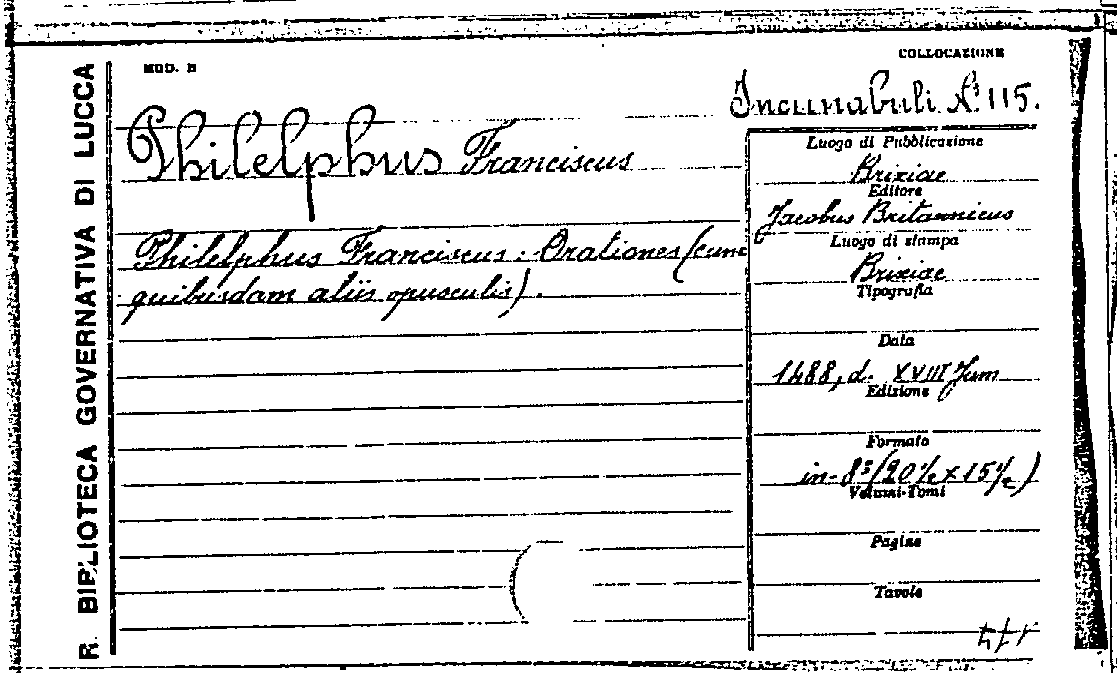 R. BIBLIOTECA GOVERNATIVA DI LUCCA
MOD. B
COLLOCAZIONE
Incunabuli N.º 115.
Philelphus Franciscus
Philelphus Franciscus: Orationes (cum
quibusdam aliis opusculis).
Luogo di Pubblicazione
Brixiae
Editore
Jacobus Britannicus
Luogo di stampa
Brixiae
Tipografia
Data
1488, d. XVIII Jun
Edizione
Formato
in-8º (20½ x 15½)
Volumi-Tomi
Pagine
Tavole